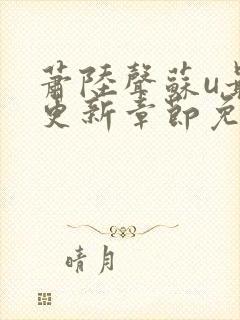 蕭陸聲蘇u最
更新章節免
晴月